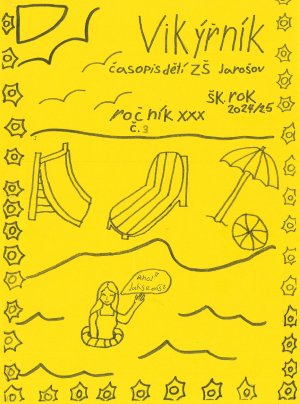 Vikýřník
časopis dětí ZŠ Jarošov
šk. rok
2024/25
ročník xxx
č. 3
Ahoj